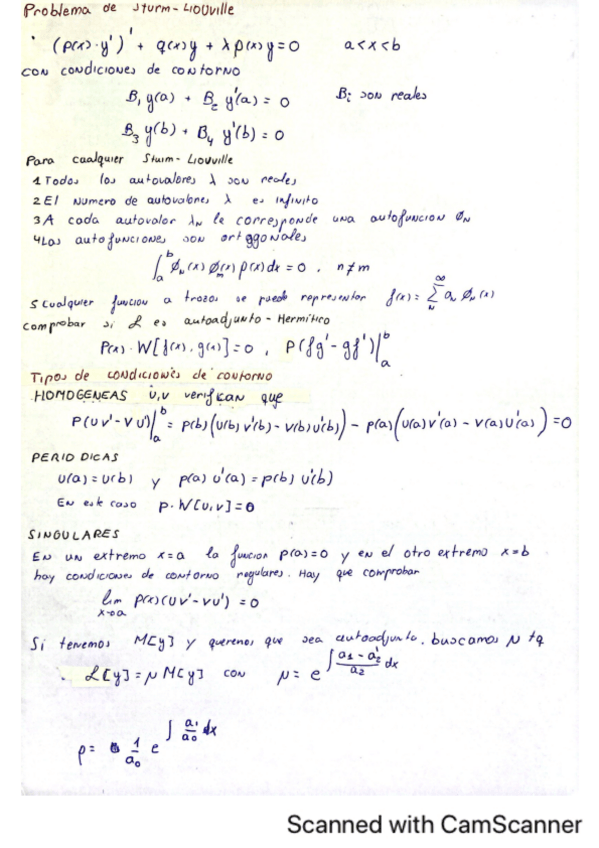 Problema de Sturm-Liouville
(p(x)·y')' + q(x)y + λρ(x)y=0 a<x<b
CON CONDICIONES de CONTORNO
B₁y(a) + B₂ y'(a) = 0 Bᵢ son reales
B₃ y(b) + B₄ y'(b) = 0
Para cualquier Sturm-Liouville
1 Todos los autovalores λ son reales
2 El Numero de autovalores λ es infinito
3 A cada autovalor λN le corresponde una autofuncion ØN
4 Las autofunciones son ortogonales
∫ₐᵇ Øₙ(x) Øₘ(x) ρ(x)dx = 0 , n≠m
5 Cualquier funcion a trozos se puede representar f(x) = Σ_N^∞ aₙ Øₙ(x)
Comprobar si L es autoadjunto - Hermitico
P(x)·W[f(x),g(x)] = 0 , P(fg'-gf')|ₐᵇ
Tipos de condiciones de contorno
HOMOGENEAS u,v verifican que
P(uv'-vu')|ₐᵇ = p(b)(u(b)v'(b) - v(b)u'(b)) - p(a)(u(a)v'(a) - v(a)u'(a)) = 0
PERIODICAS
u(a) = u(b) y p(a) u'(a) = p(b) u'(b)
EN este caso p·W[u,v] = 0
SINGULARES
EN UN extremo x=a la funcion p(a)=0 y en el otro extremo x=b
hay condiciones de contorno regulares. Hay que comprobar
lim x→a P(x)(uv'-vu') = 0
Si tenemos M[y] y queremos que sea autoadjunta, buscamos μ tq
L[y] = μ M[y] con μ = e^∫ (a₁ - a₂')/a₂ dx
ρ = 1/a₀ e^∫ a₁/a₀ dx
Scanned with CamScanner